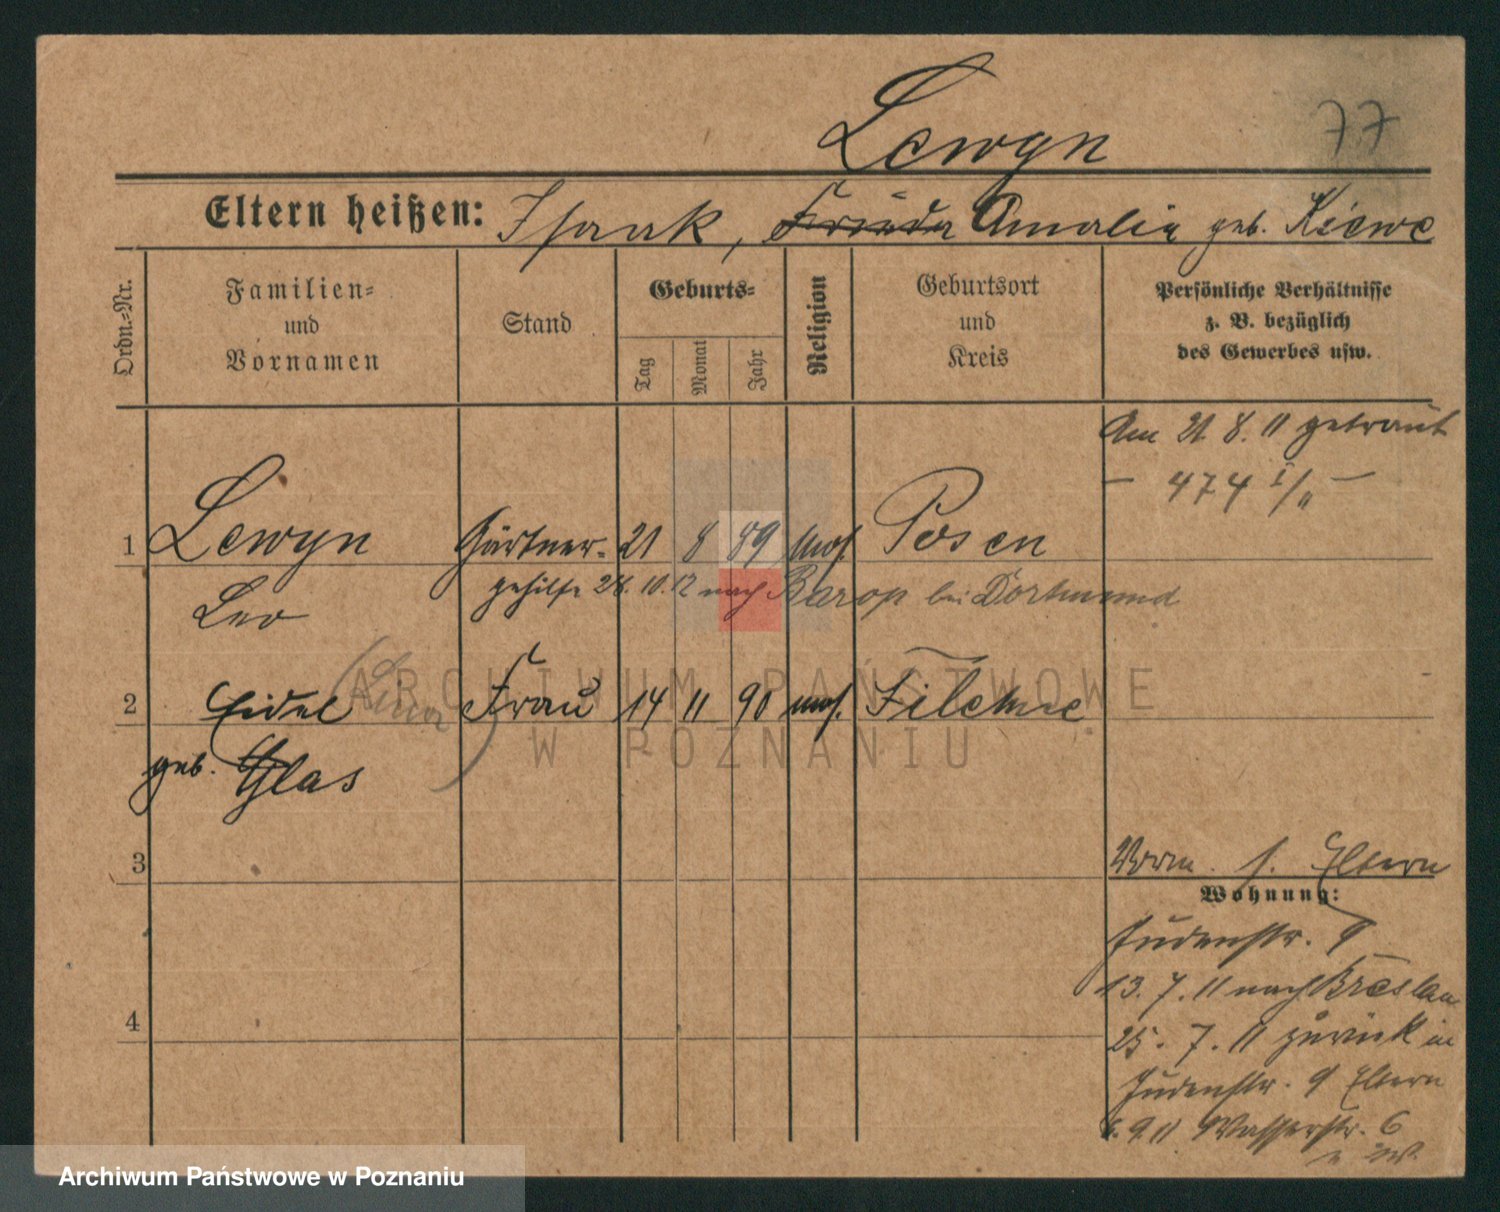 Lewyn
77
Eltern heißen: Isaak, Frieda Amalia geb. Kiewe
Ordn.-Nr.
Familien-
und
Vornamen
Stand
Geburts-
Tag
Monat
Jahr
Religion
Geburtsort
und
Kreis
Persönliche Verhältnisse
z. B. bezüglich
des Gewerbes usw.
Am 21 8. 11 getraut
– 474 I/11 –
1 Lewyn Gärtner- 21 8 89 mos. Posen
gehilfe 28. 10. 12 nach Barop bei Dortmund
Leo
2 Eidel (Lina) Frau 14 11 90 mos. Filehne
geb. Glas
3
Vorm. s. Eltern
Wohnung:
Judenstr. 9
13. 7. 11 nach Breslau
4
25. 7. 11 zurück in
Judenstr. 9 Eltern
9 11 Wasserstr. 6
ARCHIWUM PAŃSTWOWE
W POZNANIU
Archiwum Państwowe w Poznaniu